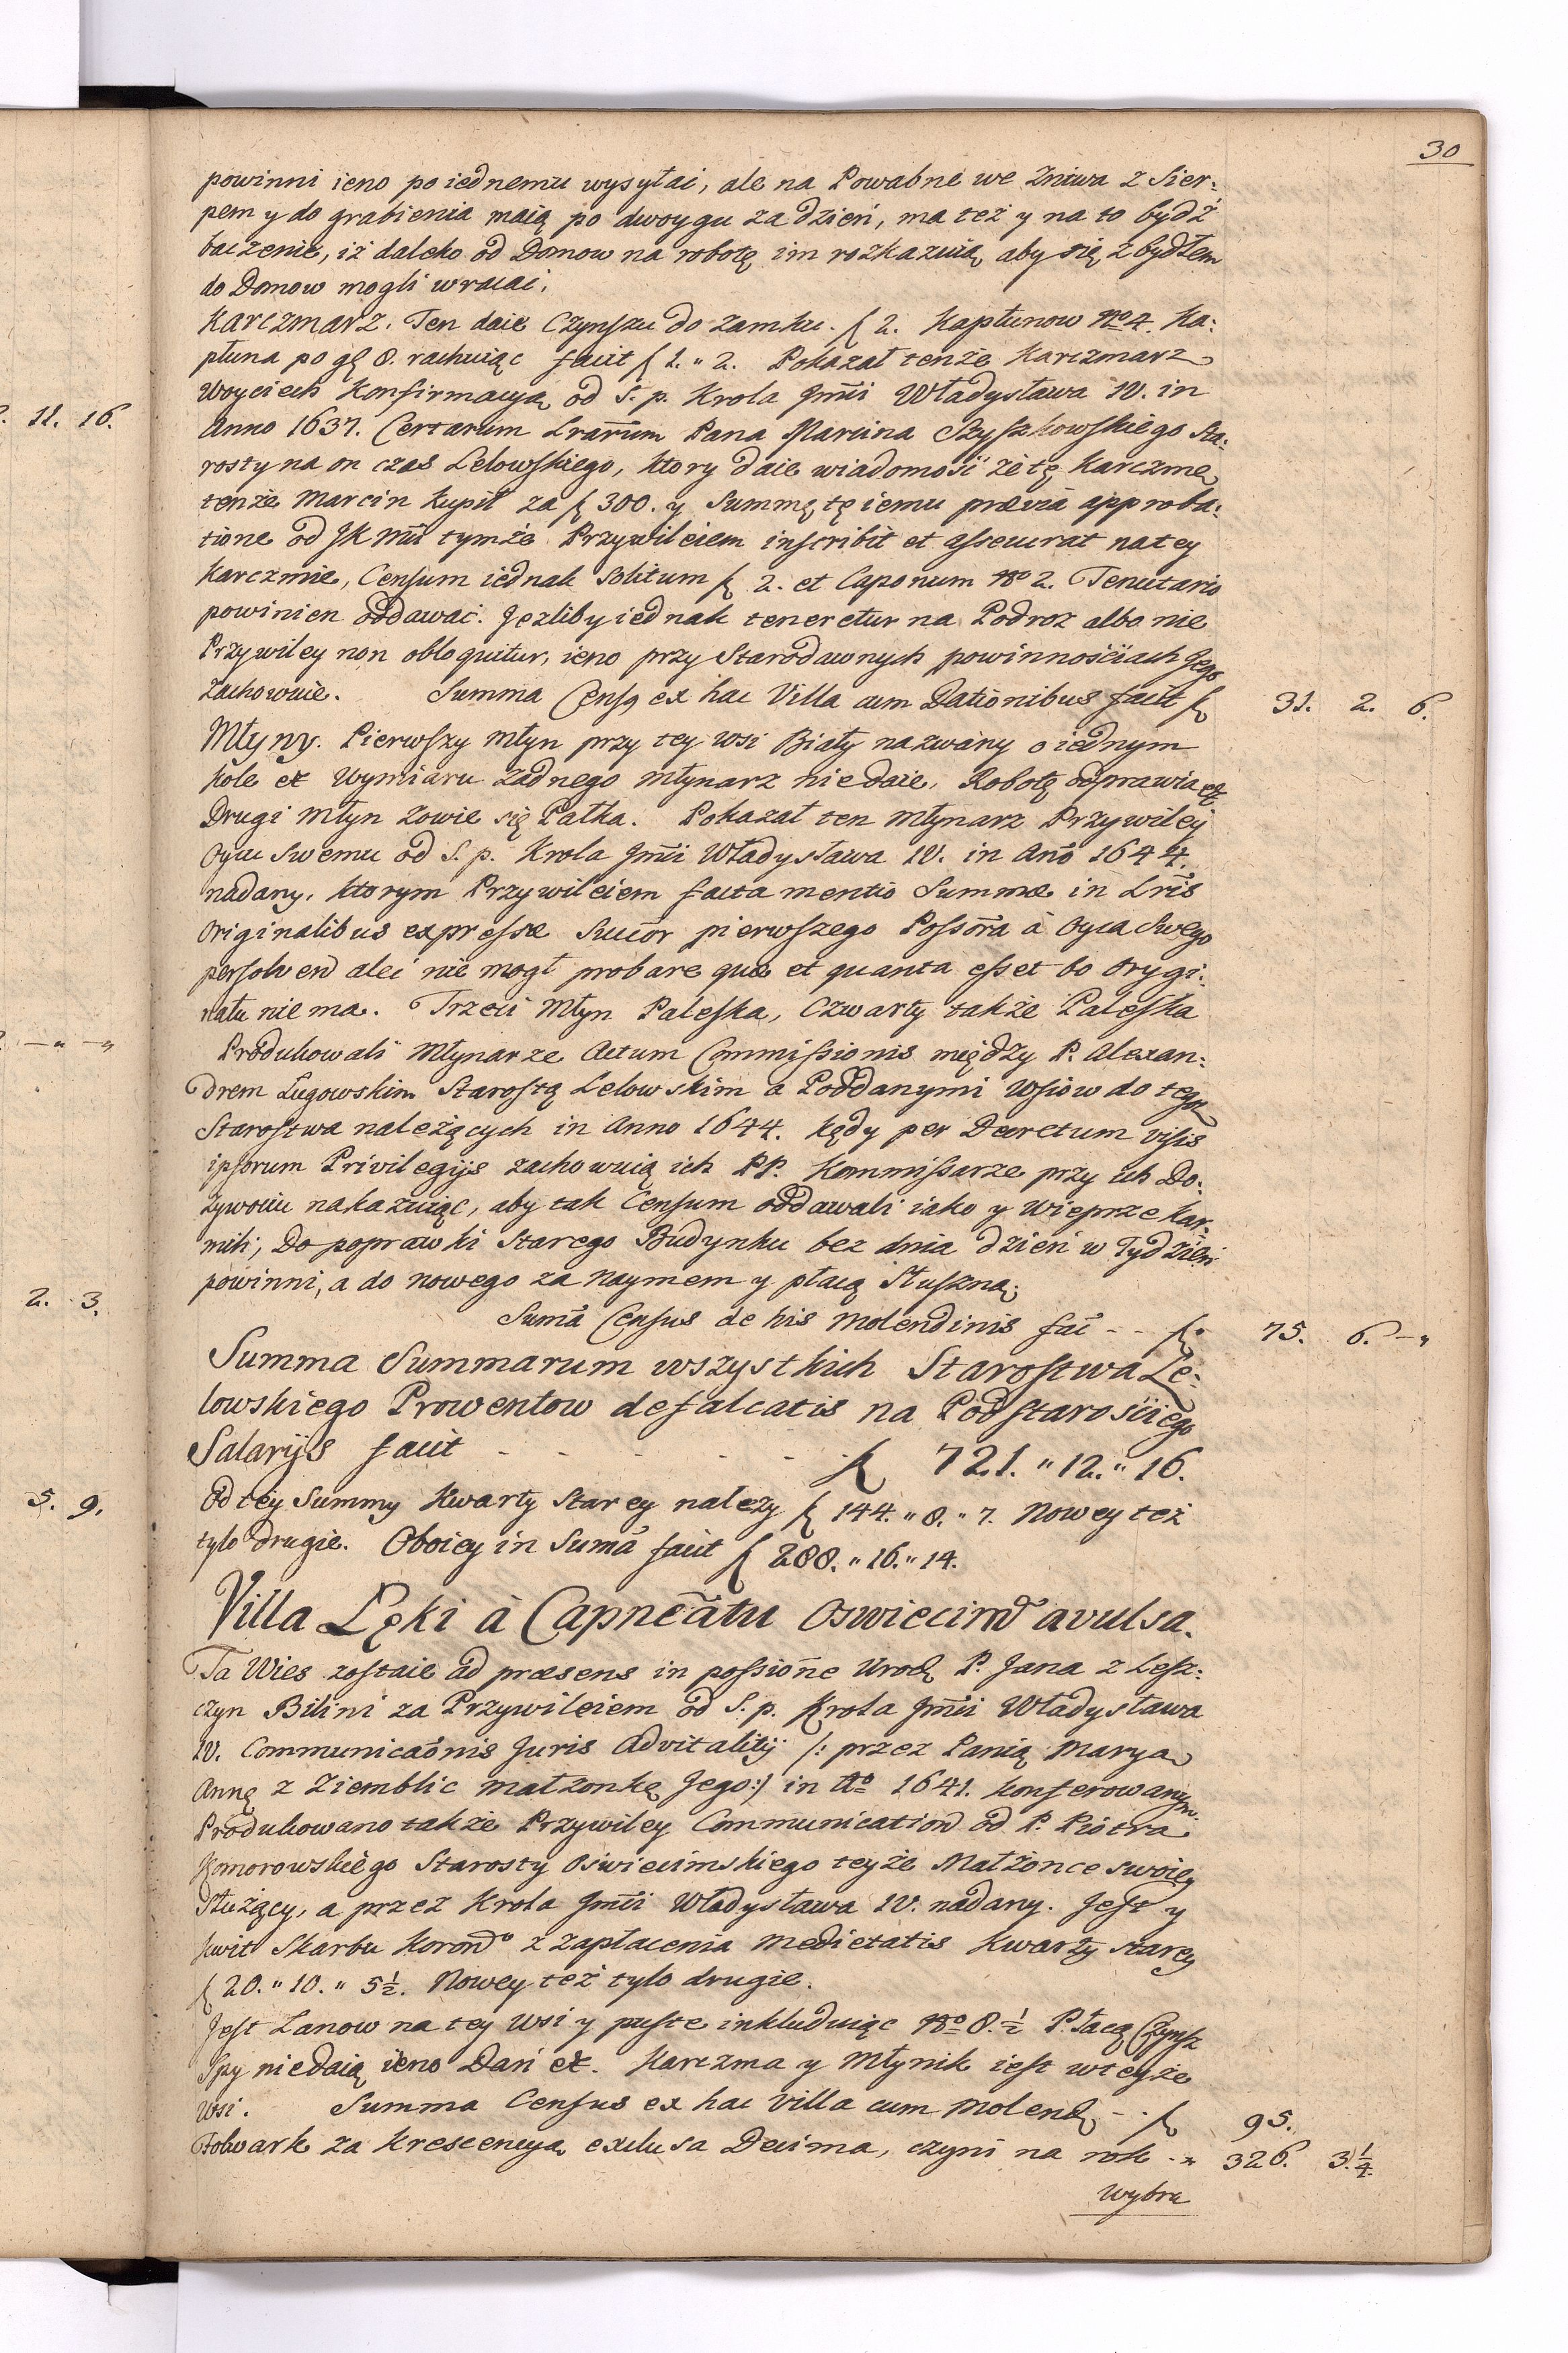 30
powinni ieno po iednemu wysyłać, ale na Powabne we Żniwa z Sier:
pem y do grabienia maią po dwoygu za dzień, ma też y na to bydź
baczenie, iż daleko od Domow na robotę im rozkazuią, aby się z bydłem
do Domow mogli wracać.
Karczmarz. Ten daie Czynszu do Zamku. f 2. Kapłunow No 4. Ka:
płuna po gę 8. rachuiąc facit f 1. " 2. Pokazał tenże Karczmarz
Woyciech Konfirmacyą od S. p. Krola Jmći Władysława IV. in
Anno 1637. Certarum Lrarum Pana Marcina Szyszkowskiego Sta:
rosty na on czas Lelowskiego, ktory daie wiadomość że tę Karczmę
tenże Marcin kupił za f 300. y Summę tę iemu prævia approba:
tione od JK Mći tymże Przywileiem inscribit et assecurat na tey
Karczmie, Censum iednak solitum f 2. et Caponum No 2. Tenutario
powinien oddawać. Jeżliby iednak teneretur na Podroż albo nie
Przywiley non obloquitur, ieno przy Starodawnych powinnościach Jego
zachowuie. Summa Censq ex hac Villa cum Dationibus facit f 31. 2. 6.
Młyny. Pierwszy młyn przy tey wsi Biały nazwány o iednym
kole et Wymiaru żadnego młynarz nie daie, Robotę odprawia et
Drugi Młyn zowie się Pałka. Pokazał ten młynarz Przywiley
Oycu swemu od S. p. Krola Jmći Władysława IV. in Ano 1644.
nadany, ktorym Przywileiem facta mentio Summæ in Lris
Originalibus expressæ Succor pierwszego Possora à Oyca Swego
persolven aleć nie mogł probare quæ et quanta esset bo Orygi:
nału nie ma. Trzeci Młyn Paleska, Czwarty także Paleska
Produkowali Młynarze Actum Commissionis między P. Alexan:
drem Ługowskim Starostą Lelowskim a Poddanymi Wsiow do tego
Starostwa należących in Anno 1644. kędy per Decretum visis
ipsorum Privilegijs zachowuią ich PP. Kommissarze przy ich Do:
żywociu nakazuiąc, aby tak Censum oddawali iako y wieprze kar:
mili, Do poprawki Starego Budynku bez dnia dzień w Tydzień
powinni, a do nowego za naymem y płacą Słuszną.
Suma Census de his Molendinis fac - - f. 75. 6. - "
Summa Summarum wszystkich Starostwa Le:
lowskiego Prowentow defalcatis na Podstarościego
Salarijs facit - - - - - - f 721. " 12. " 16.
Od tey Summy Kwarty Starey należy f 144. " 8. " 7. Nowey też
tylo drugie. Oboiey in Suma facit f 288. " 16. " 14.
Villa Lęki à Capneatu Oswiecim avulsa.
Ta Wies zostaie ad præsens in possione Urodz P. Jana z Lesz:
czyn Bilini za Przywileiem od S. p. Krola Jmći Władysława
IV. Communicaonis Juris Advitalitij /: przez Panią Maryą
Annę z Ziemblic małżonkę Jego :/ in Ao 1641. konferowanym
Produkowano także Przywiley Communication od P. Piotra
Komorowskiego Starosty Oświecimskiego teyże Małżonce swoiey
służący, a przez Krola Jmći Władysława IV. nadany. Jest y
kwit Skarbu Korono z zapłacenia medietatis Kwarty starey
f 20. " 10. " 5 1/2. Nowey też tylo drugie.
Jest Lanow na tey wsi y puste inkluduiąc No 8. 1/2 Płacą Czynsz
Spy niedaią ieno Dań et. Karczma y Młynik iest w teyże
wsi. Summa Census ex hac villa cum Molend - - f 95.
Folwark za Krescencyą exclusa Decima, czyni na rok - " 326. 3. 1/4.
Wybra
11. 16.
- " - "
2. 3.
5. 9.